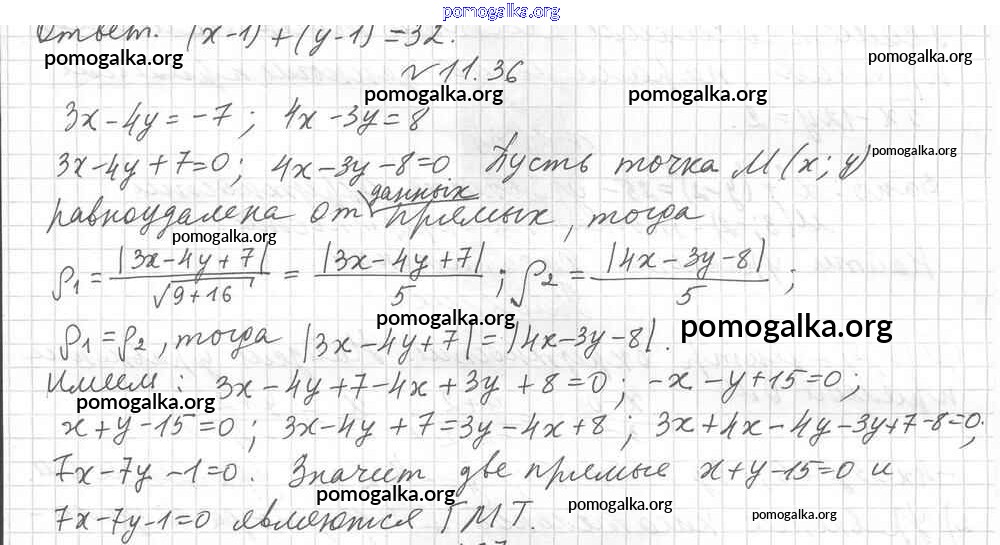 pomogalka.org
Ответ. (x-1) + (y-1) = 32.
pomogalka.org
pomogalka.org
№ 11.36
pomogalka.org
pomogalka.org
3x-4y = -7; 4x-3y = 8
3x-4y+7=0; 4x-3y-8=0. Пусть точка M(x; y)
pomogalka.org
данных
равноудалена от прямых, тогда
pomogalka.org
ρ1 = |3x-4y+7| / √9+16 = |3x-4y+7| / 5; ρ2 = |4x-3y-8| / 5;
pomogalka.org
pomogalka.org
ρ1 = ρ2, тогда |3x-4y+7| = |4x-3y-8|.
Имеем: 3x-4y+7-4x+3y+8=0; -x-y+15=0;
pomogalka.org
x+y-15=0; 3x-4y+7=3y-4x+8; 3x+4x-4y-3y+7-8=0;
7x-7y-1=0. Значит две прямые x+y-15=0 и
pomogalka.org
pomogalka.org
7x-7y-1=0 являются ГМТ.
pomogalka.org